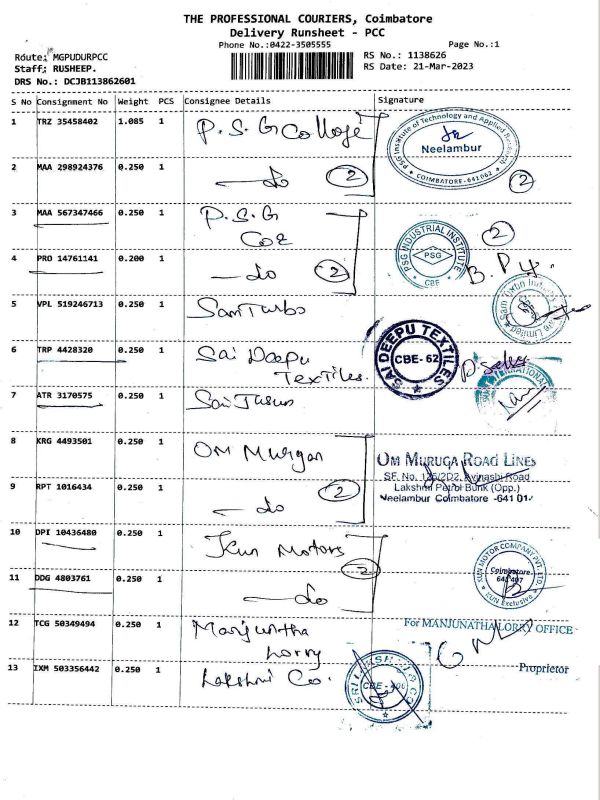 THE PROFESSIONAL COURIERS, Coimbatore
Delivery Runsheet - PCC
Phone No.:0422-3505555
Page No.:1
Route: MGPUDURPCC
RS No.: 1138626
Staff: RUSHEEP.
RS Date: 21-Mar-2023
DRS No.: DCJB113862601
S No Consignment No Weight PCS Consignee Details Signature
1 TRZ 35458402 1.085 1 P.S.G College
PSG Institute of Technology and Applied Research
Neelambur
COIMBATORE-641062
2 MAA 298924376 0.250 1 —do 2
2
3 MAA 567347466 0.250 1 P.S.G
2
PSG INDUSTRIAL INSTITUTE
PSG
CBE
4 PRO 14761141 0.200 1 —do 2
5 VPL 519246713 0.250 1 Sam Turbo
6 TRP 4428320 0.250 1 Sai Deepu
Textiles.
SAI DEEPU TEXTILES
CBE-62
7 ATR 3170575 0.250 1
8 KRG 4493501 0.250 1 OM Murgan
OM MURUGA ROAD LINES
SF. No. Avinashi Road
Lakshmi Petrol Bunk (Opp.)
Neelambur Coimbatore -641 01
9 RPT 1016434 0.250 1 —do 2
10 DPI 10436480 0.250 1 Kun Motors
KUN MOTOR COMPANY PVT. LTD
Coimbatore
641407
KUN Exclusive
11 DDG 4803761 0.250 1 —do 2
12 TCG 50349494 0.250 1 Manjuntha
Lorry
For MANJUNATHA LORRY OFFICE
Proprietor
13 IXM 503356442 0.250 1 Lakshmi Co.